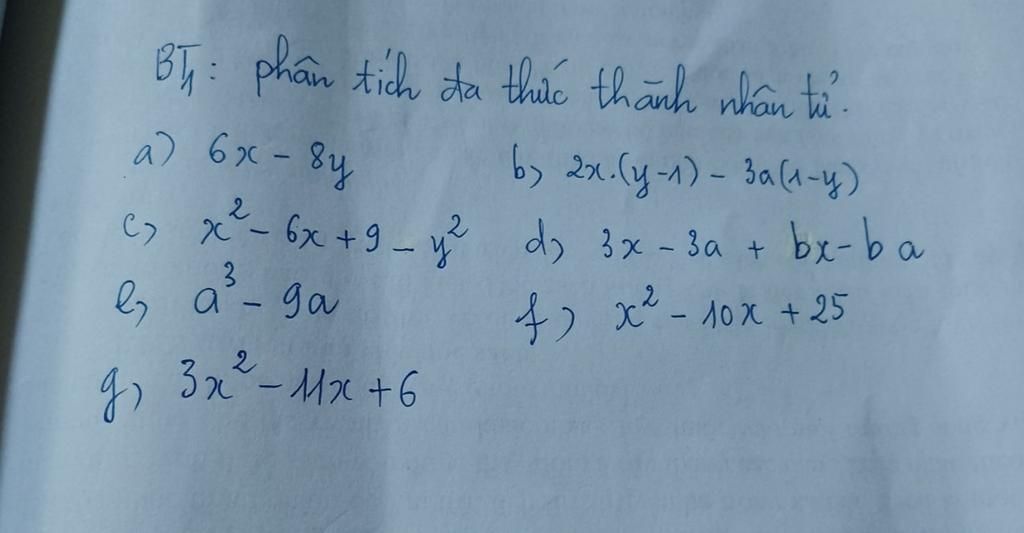 BT1: phân tích đa thức thành nhân tử.
a) 6x - 8y b) 2x.(y-1) - 3a(1-y)
c) x² - 6x + 9 - y² d) 3x - 3a + bx - ba
e) a³ - 9a f) x² - 10x + 25
g) 3x² - 11x + 6